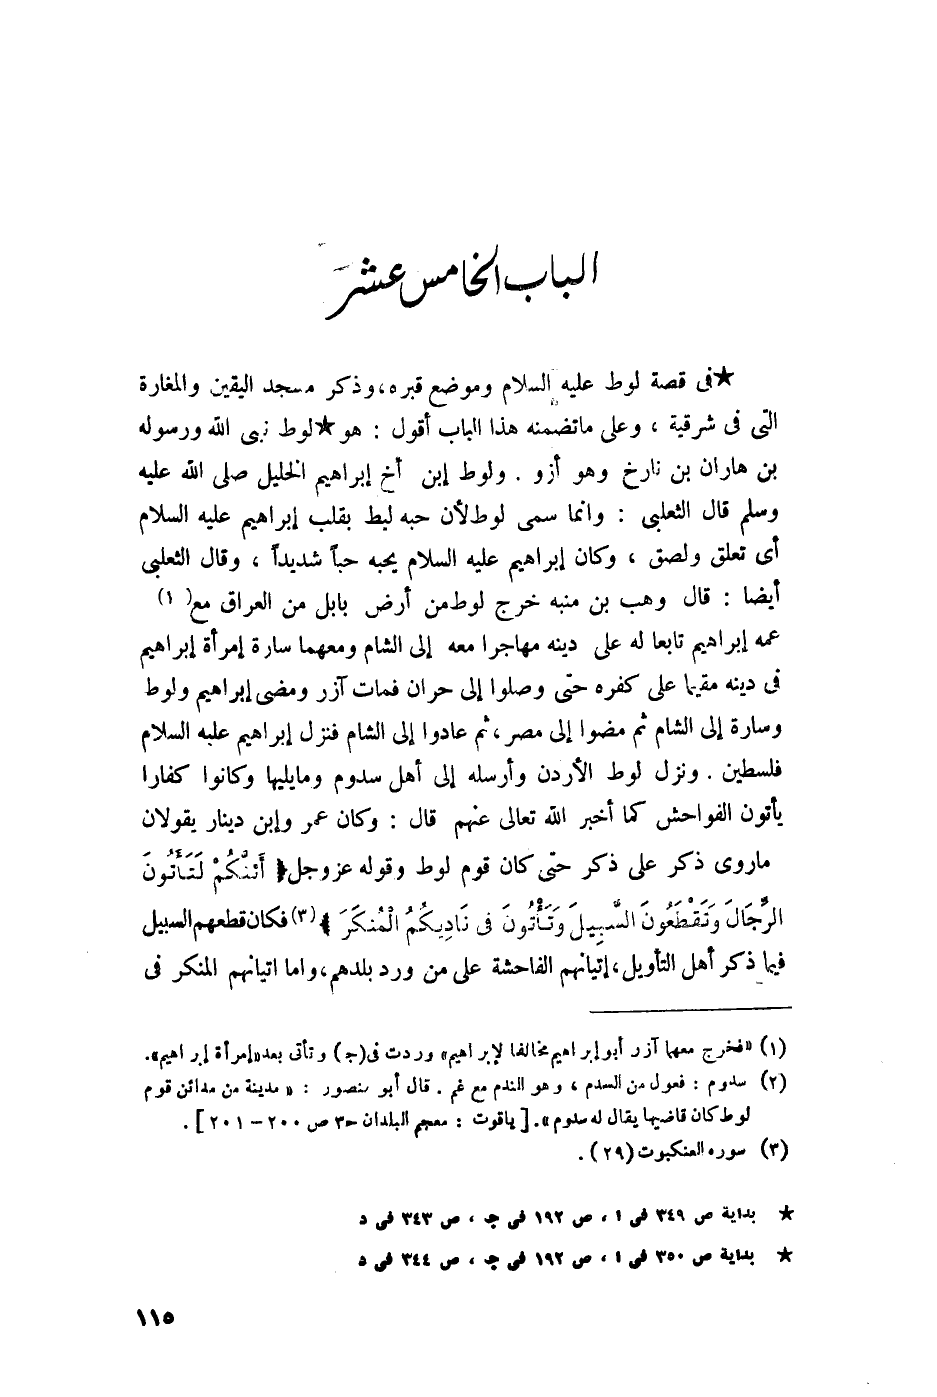 الباب الخامس عشر
★فى قصة لوط عليه السلام وموضع قبره،وذكر مسجد اليقين والمغارة
التى فى شرقية ، وعلى ماتضمنه هذا الباب أقول : هو★لوط نبى الله ورسوله
بن هاران بن نارخ وهو أزو . ولوط إبن أخ إبراهيم الخليل صلى الله عليه
وسلم قال الثعلبى : وانما سمى لوط لأن حبه ليط بقلب إبراهيم عليه السلام
أى تعلق ولصق ، وكان إبراهيم عليه السلام يحبه حباً شديداً ، وقال الثعلبى
أيضا : قال وهب بن منبه خرج لوط من أرض بابل من العراق مع(١)
عمه إبراهيم تابعا له على دينه مهاجرا معه إلى الشام ومعهما سارة إمرأة إبراهيم
فى دينه مقيما على كفره حتى وصلوا إلى حران فمات آزر ومضى إبراهيم ولوط
وسارة إلى الشام ثم مضوا إلى مصر،ثم عادوا إلى الشام فنزل إبراهيم عليه السلام
فلسطين . ونزل لوط الأردن وأرسله إلى أهل سدوم ومايليها وكانوا كفارا
يأتون الفواحش كما أخبر الله تعالى عنهم قال : وكان عمر وإبن دينار يقولان
ماروى ذكر على ذكر حتى كان قوم لوط وقوله عز وجل﴿ أَئِنَّكُمْ لَتَأْتُونَ
الرِّجَالَ وَتَقْطَعُونَ السَّبِيلَ وَتَأْتُونَ فى نَادِيكُمُ الْمُنكَرَ ﴾(٣) فكان قطعهم السبيل
فيما ذكر أهل التأويل،إتيانهم الفاحشة على من ورد بلدهم،واما اتيانهم المنكر فى
(١) «فخرج معهما آزر أبو إبراهيم مخالفا لإبراهيم» وردت فى(ج) وتأتى بعد«إمرأة إبراهيم».
(٢) سدوم : فعول من السدم ، وهو الندم مع غم . قال أبو منصور : « مدينة من مدائن قوم
لوط كان قاضيها يقال له سدوم ».[ ياقوت : معجم البلدان حـ٣ ص ٢٠٠ – ٢٠١ ] .
(٣) سوره العنكبوت (٢٩) .
★ بداية ص ٣٤٩ فى ا ، ص ١٩٢ فى ج ، ص ٣٤٣ فى د
★ بداية ص ٣٥٠ فى ا ، ص ١٩٢ فى ج ، ص ٣٤٤ فى د
١١٥